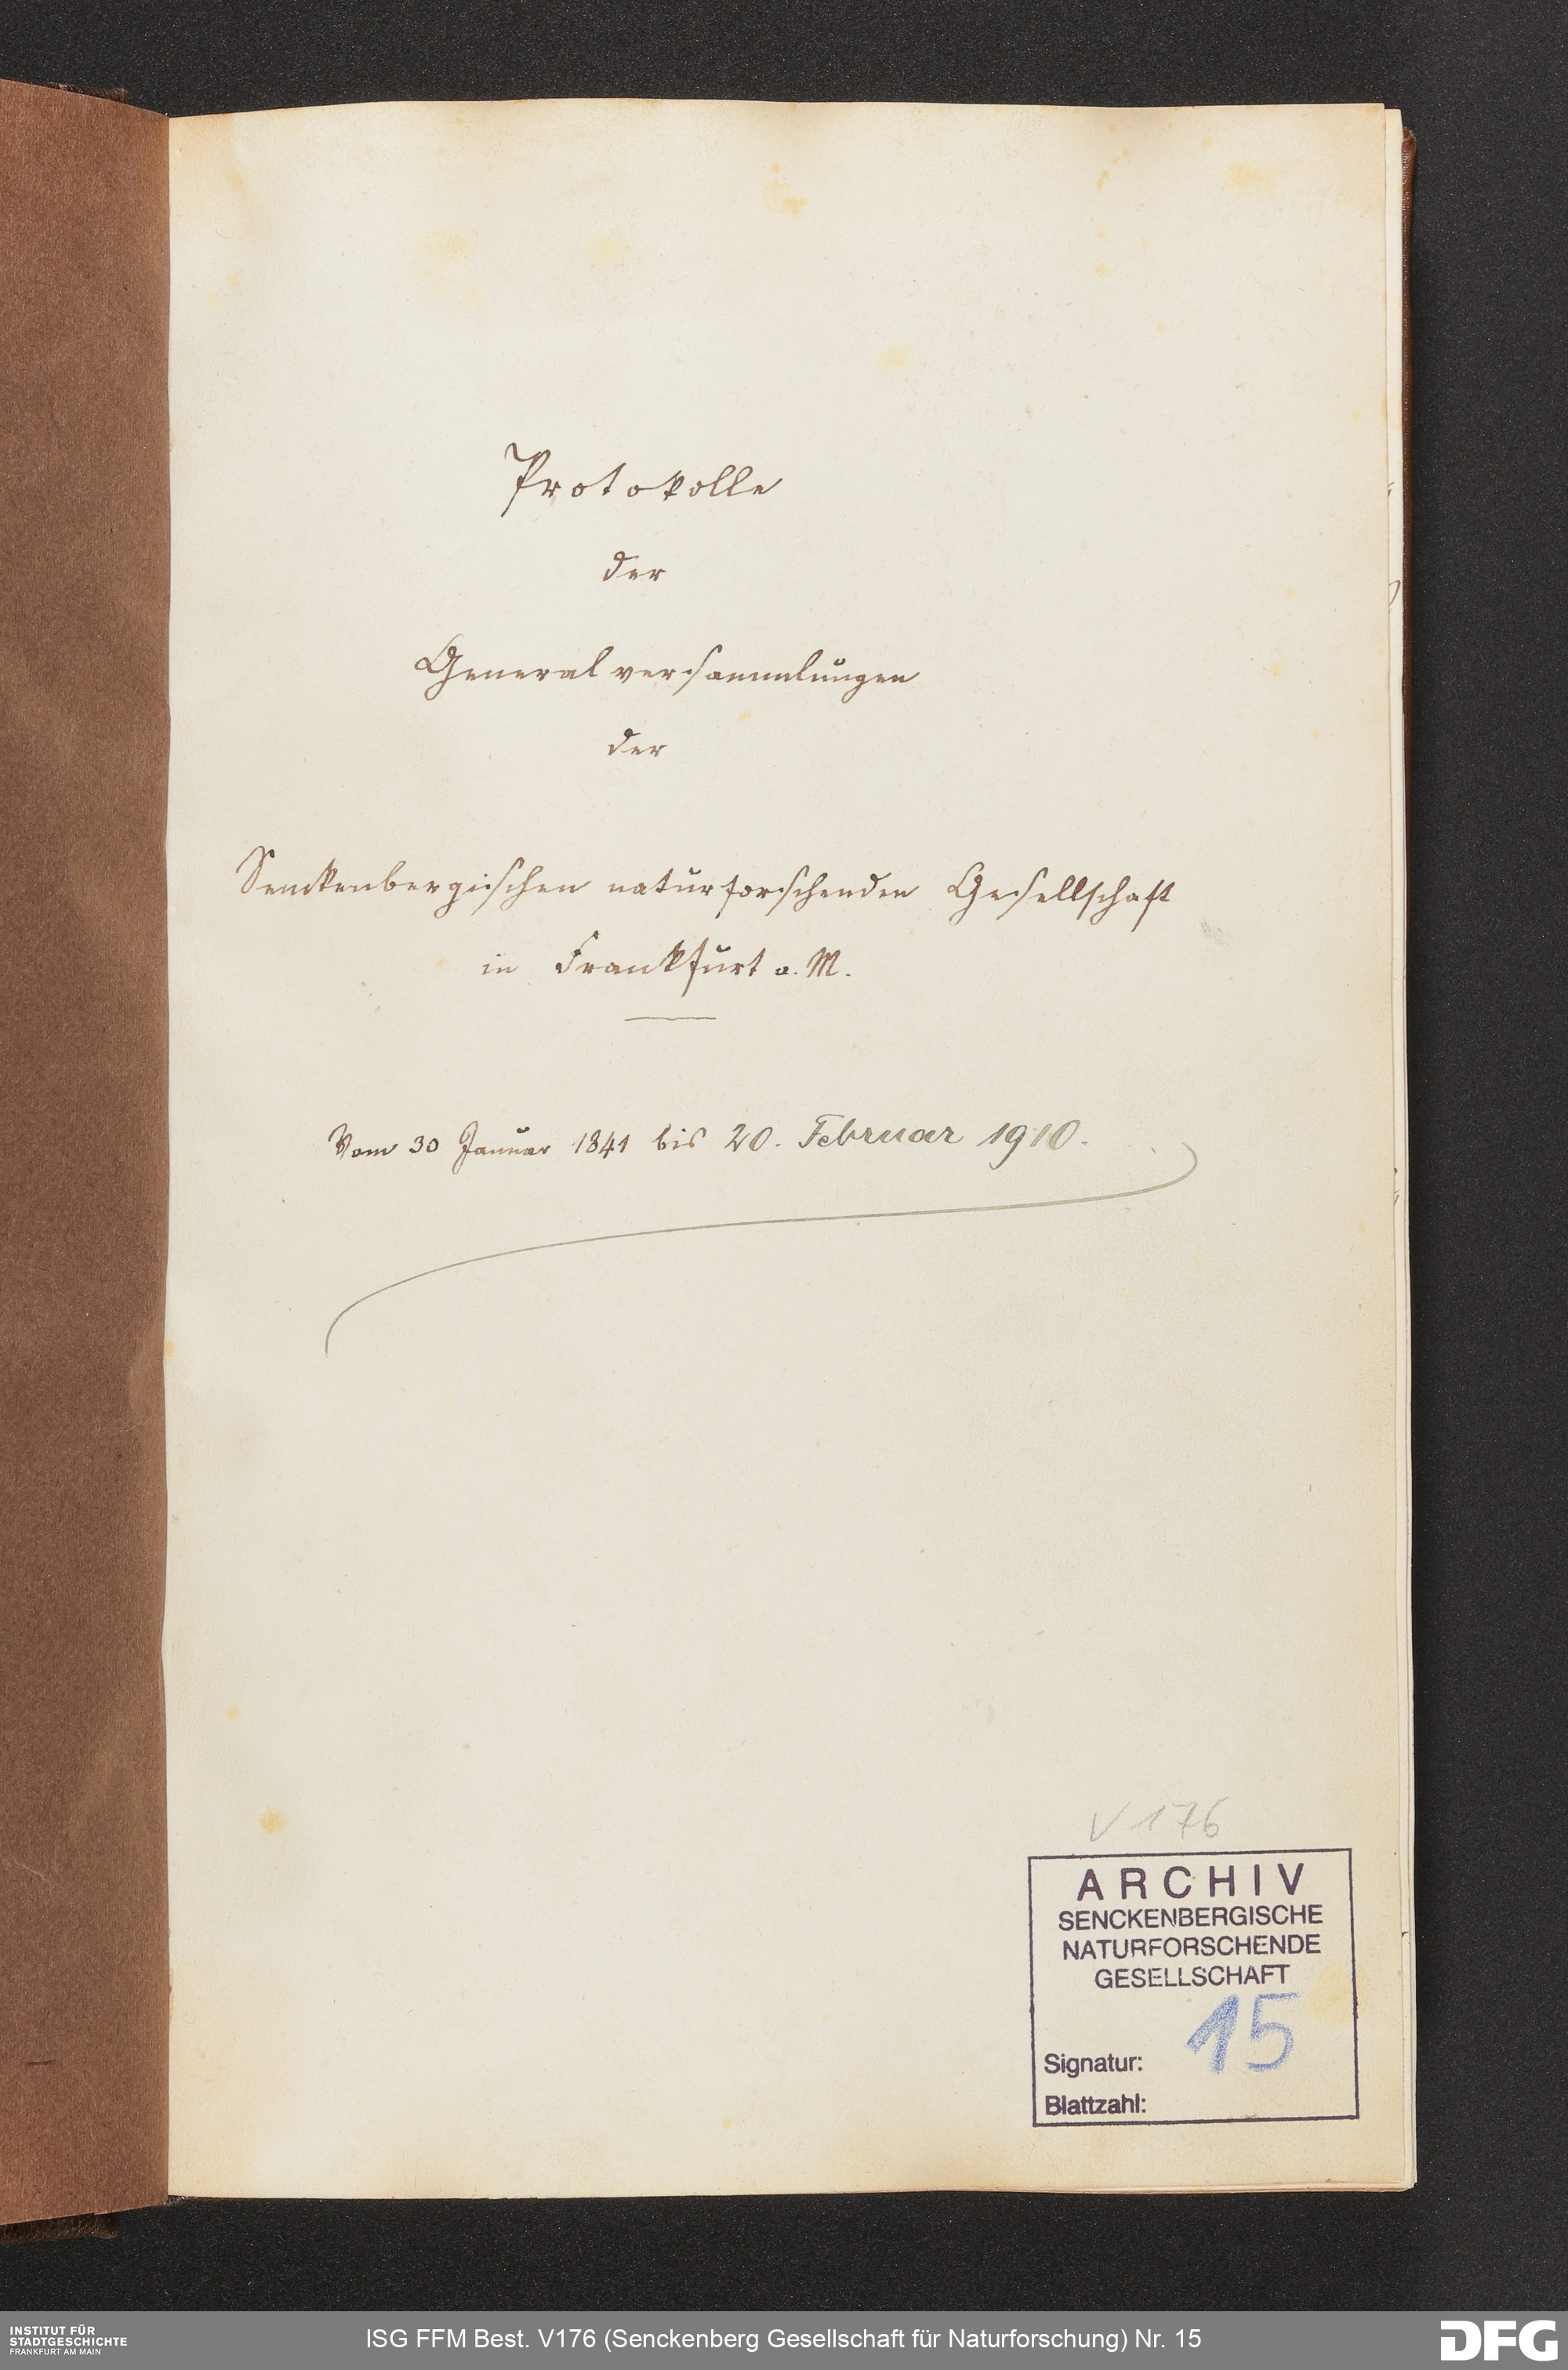 Protokolle
der
Generalversammlungen
der
Senckenbergischen naturforschenden Gesellschaft
in Frankfurt a. M.
Vom 30 Januar 1841 bis 20. Februar 1910.
V 176
ARCHIV
SENCKENBERGISCHE
NATURFORSCHENDE
GESELLSCHAFT
15
Signatur:
Blattzahl:
INSTITUT FÜR
STADTGESCHICHTE
FRANKFURT AM MAIN
ISG FFM Best. V176 (Senckenberg Gesellschaft für Naturforschung) Nr. 15
DFG